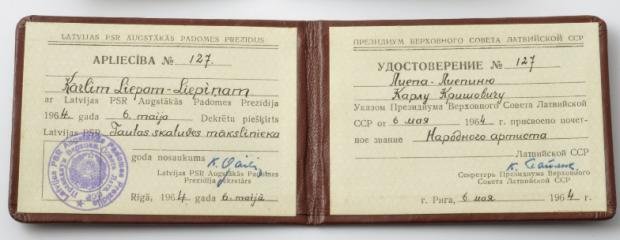 LATVIJAS PSR AUGSTĀKĀS PADOMES PREZIDIJS
APLIECĪBA № 127.
Kārlim Liepam-Liepiņam
ar Latvijas PSR Augstākās Padomes Prezidija
1964 gada 6. maija Dekrētu piešķirts
Latvijas PSR Tautas skatuves mākslinieka
goda nosaukums
Latvijas PSR Augstākās Padomes
Prezidija sekretārs
Rīgā, 1964 gada 6. maijā
ПРЕЗИДИУМ ВЕРХОВНОГО СОВЕТА ЛАТВИЙСКОЙ ССР
УДОСТОВЕРЕНИЕ № 127
Лиепа-Лиепиню
Карлу Кришовичу
Указом Президиума Верховного Совета Латвийской
ССР от 6 мая 1964 г. присвоено почет-
ное звание Народного артиста
Латвийской ССР
Секретарь Президиума Верховного
Совета Латвийской ССР
г. Рига, 6 мая 1964 г.